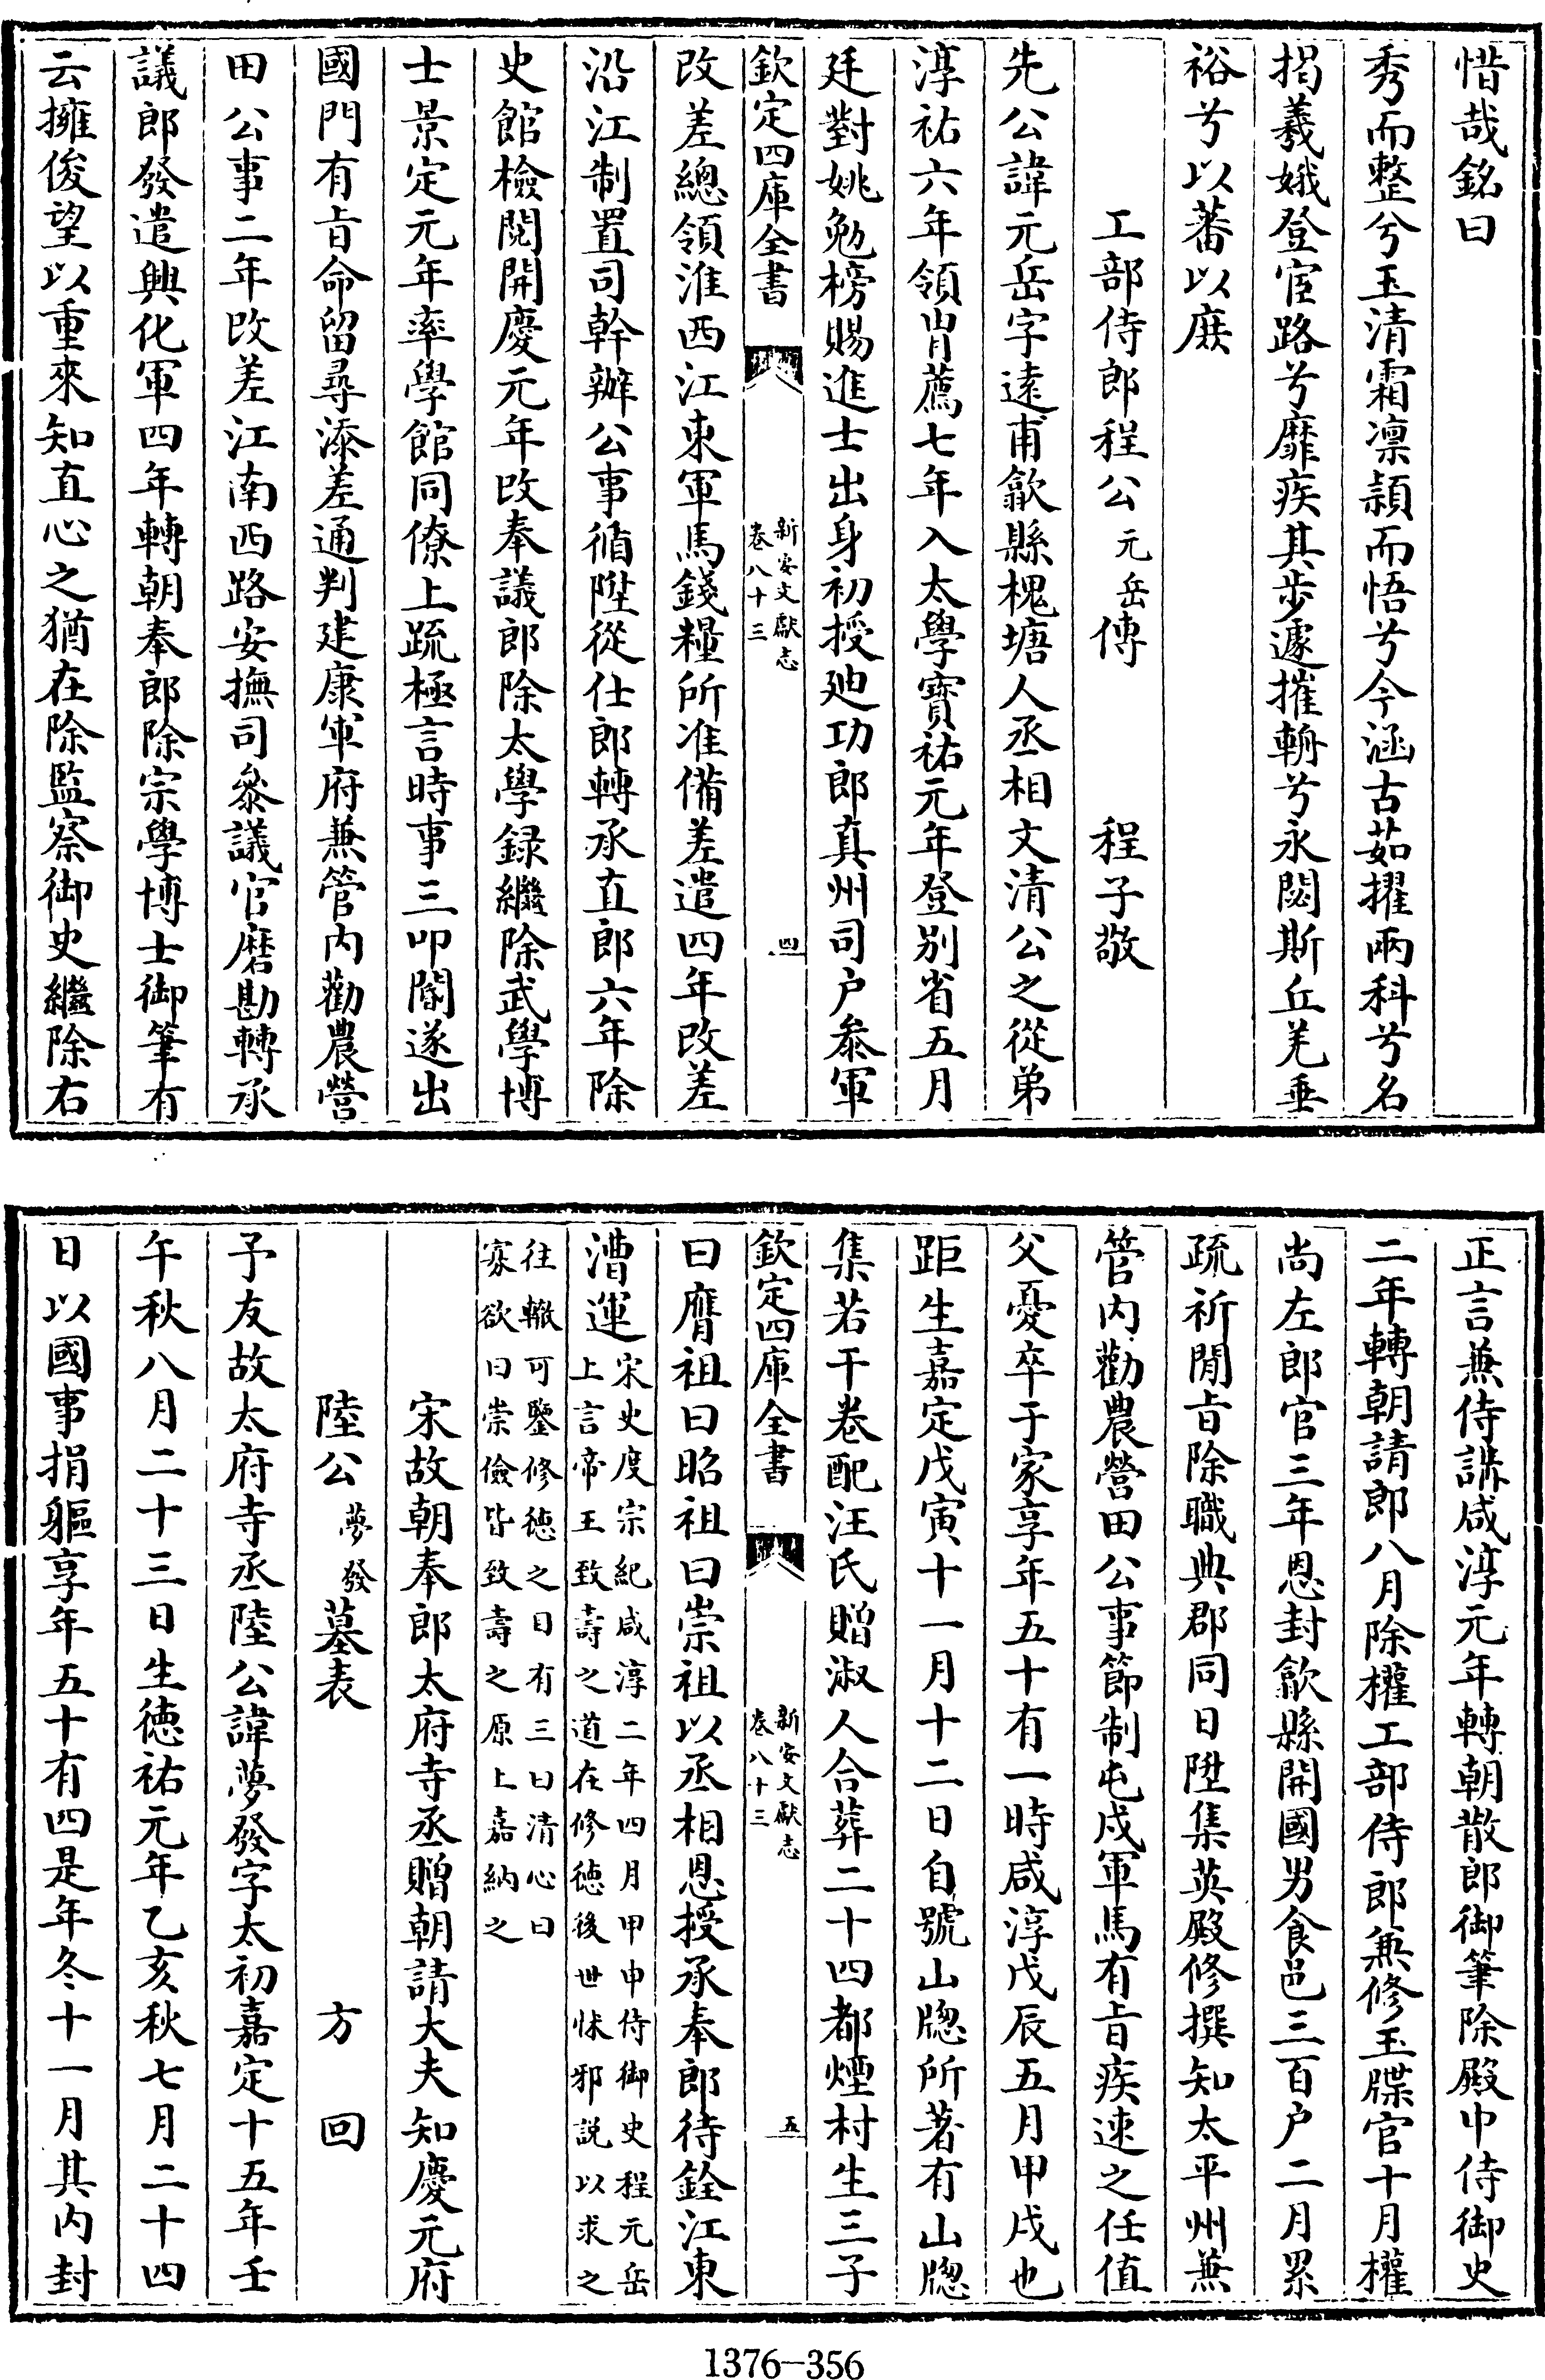 惜哉銘曰
秀而整兮玉清霜凛頴而悟兮今涵古茹擢兩科兮名
掲羲娥登宦路兮靡疾其步遽摧輈兮永閟斯丘羌垂
裕兮以蕃以庶
工部侍郎程公元岳傳　程子敬
先公諱元岳字逺甫歙縣槐塘人丞相文清公之從弟
淳祐六年領胄薦七年入太學寳祐元年登别省五月
廷對姚勉榜賜進士出身初授廸功郎真州司户叅軍
欽定四庫全書　新安文獻志卷八十三　四
改差總領淮西江東軍馬錢糧所准備差遣四年改差
沿江制置司幹辦公事循陞從仕郎轉承直郎六年除
史館檢閲開慶元年改奉議郎除太學録繼除武學博
士景定元年率學館同僚上疏極言時事三叩閽遂出
國門有㫖命留尋添差通判建康軍府兼管内勸農營
田公事二年改差江南西路安撫司叅議官磨勘轉承
議郎發遣興化軍四年轉朝奉郎除宗學博士御筆有
云擁俊望以重來知直心之猶在除監察御史繼除右
正言兼侍講咸淳元年轉朝散郎御筆除殿中侍御史
二年轉朝請郎八月除權工部侍郎兼修玉牒官十月權
尚左郎官三年恩封歙縣開國男食邑三百户二月累
疏祈閒㫖除職典郡同日陞集英殿修撰知太平州兼
管内勸農營田公事節制屯戍軍馬有㫖疾速之任值
父憂卒于家享年五十有一時咸淳戊辰五月甲戌也
距生嘉定戊寅十一月十二日自號山牕所著有山牕
集若干卷配汪氏贈淑人合葬二十四都煙村生三子
欽定四庫全書　新安文獻志卷八十三　五
曰膺祖曰昭祖曰崇祖以丞相恩授承奉郎待銓江東
漕運宋史度宗紀咸淳二年四月甲申侍御史程元岳
上言帝王致壽之道在修徳後世怵邪説以求之
往轍可鑒修徳之目有三曰清心曰
寡欲曰崇儉皆致壽之原上嘉納之
宋故朝奉郎太府寺丞贈朝請大夫知慶元府
陸公夢發墓表　方回
予友故太府寺丞陸公諱夢發字太初嘉定十五年壬
午秋八月二十三日生徳祐元年乙亥秋七月二十四
日以國事捐軀享年五十有四是年冬十一月其内封
1376-356